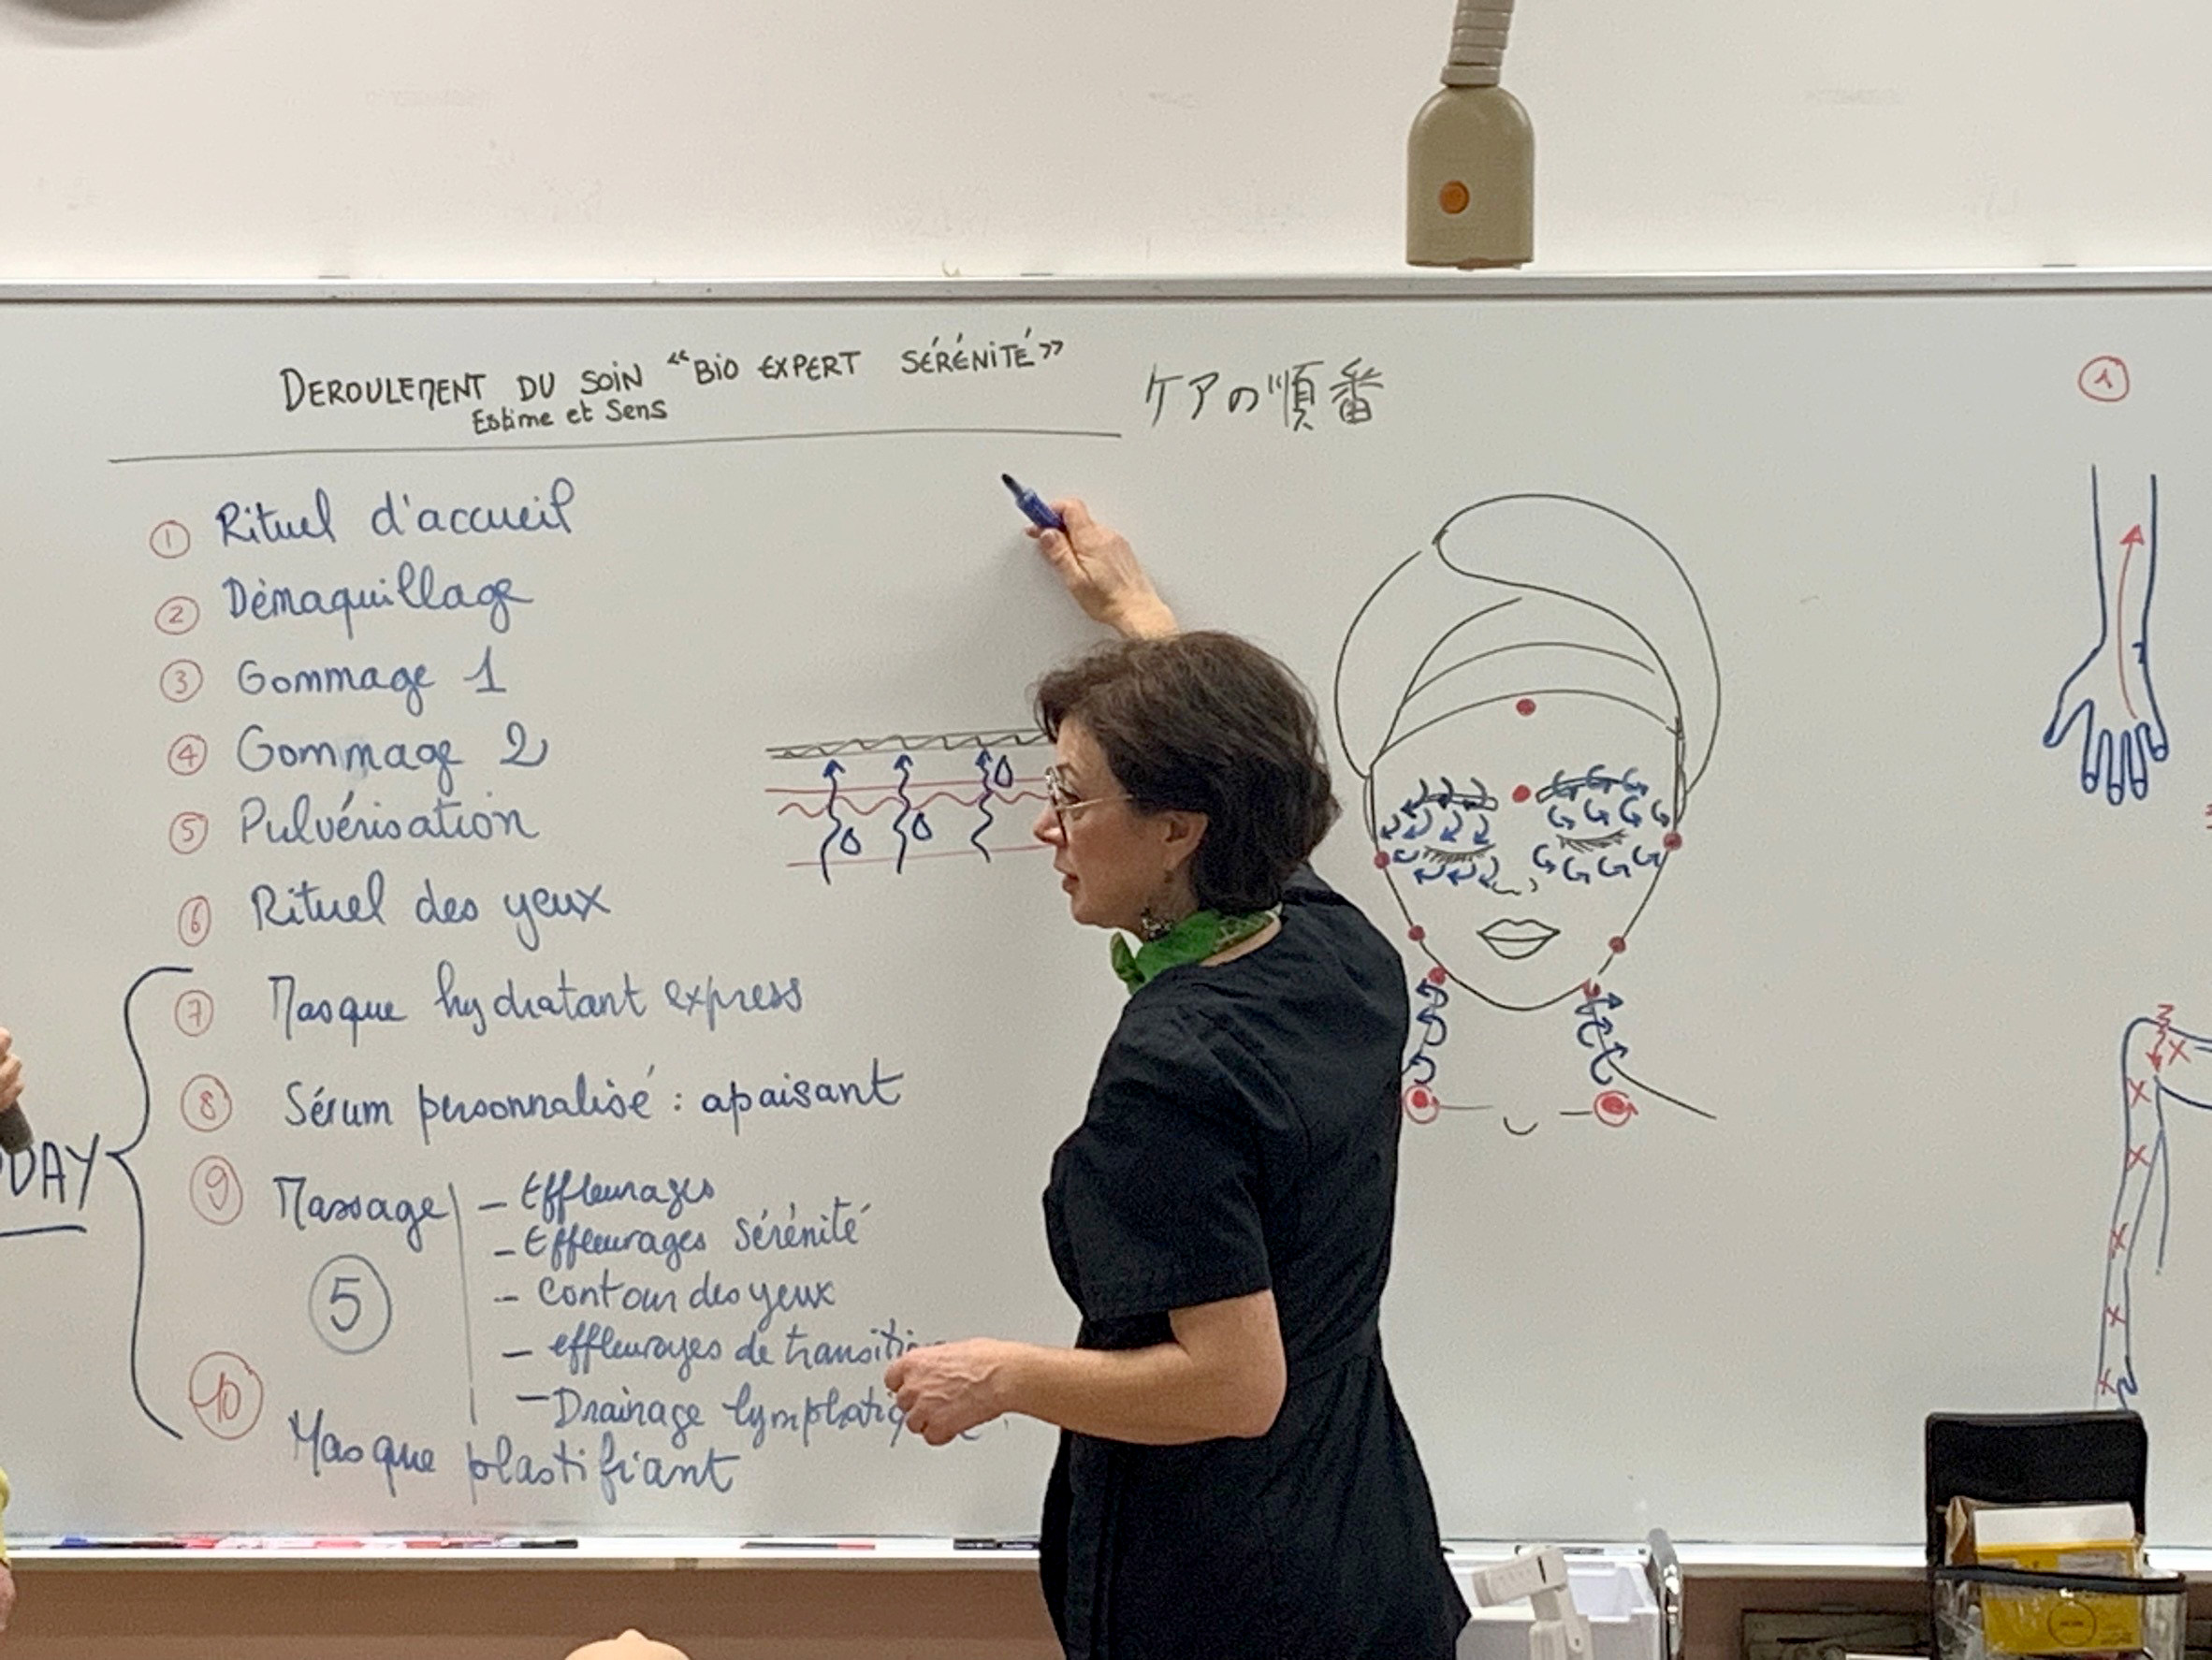 DEROULEMENT DU SOIN "BIO EXPERT SÉRÉNITÉ"
Estime et Sens
ケアの順番
① Rituel d'accueil
② Démaquillage
③ Gommage 1
④ Gommage 2
⑤ Pulvérisation
⑥ Rituel des yeux
⑦ Masque hydratant express
⑧ Sérum personnalisé : apaisant
DAY
⑨ Massage
5
- Effleurages
- Effleurages Sérénité
- Contour des yeux
- effleurages de transiti
- Drainage lymphatiq
⑩ Masque plastifiant
①